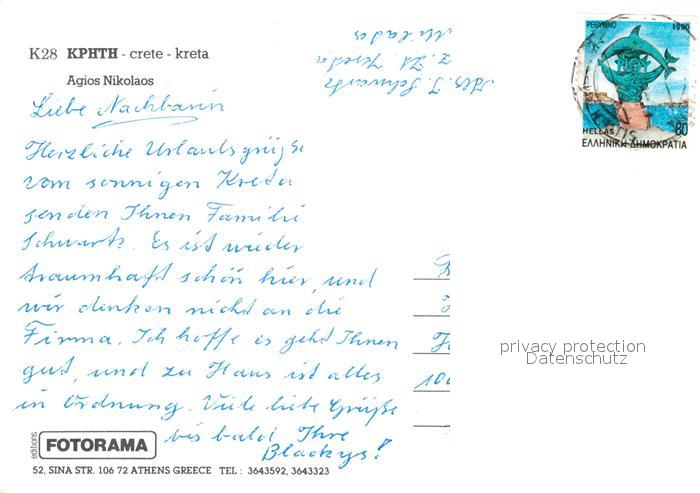 K28 ΚΡΗΤΗ - crete - kreta
Agios Nikolaos
Abs. F. Schwartz
z. Zt. Kreta
ΡΕΘΥΜΝΟ 1990
80
HELLAS
ΕΛΛΗΝΙΚΗ ΔΗΜΟΚΡΑΤΙΑ
Liebe Nachbarin
Herzliche Urlaubsgrüße
vom sonnigen Kreta
senden Ihnen Familie
Schwartz. Es ist wieder
traumhaft schön hier, und
wir denken nicht an die
Firma. Ich hoffe es geht Ihnen
gut, und zu Haus ist alles
in Ordnung. Viele liebe Grüße
bis bald Ihre
Blackys!
privacy protection
Datenschutz
editions FOTORAMA
52, SINA STR. 106 72 ATHENS GREECE TEL: 3643592, 3643323